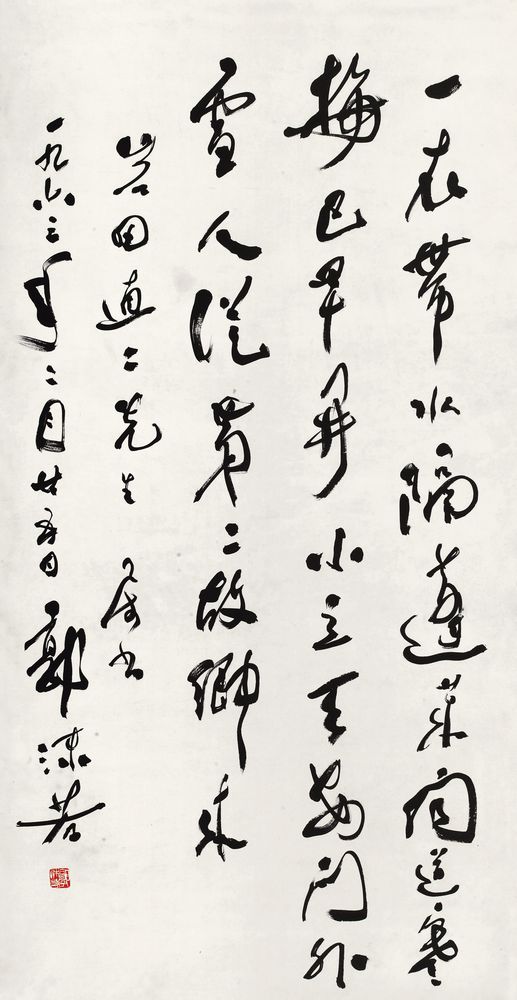 一衣带水隔蓬莱闻道寒
梅已早开小立天安门外
雪人从第二故乡来
岩田直二先生属书
一九六三年二月廿五日郭沫若